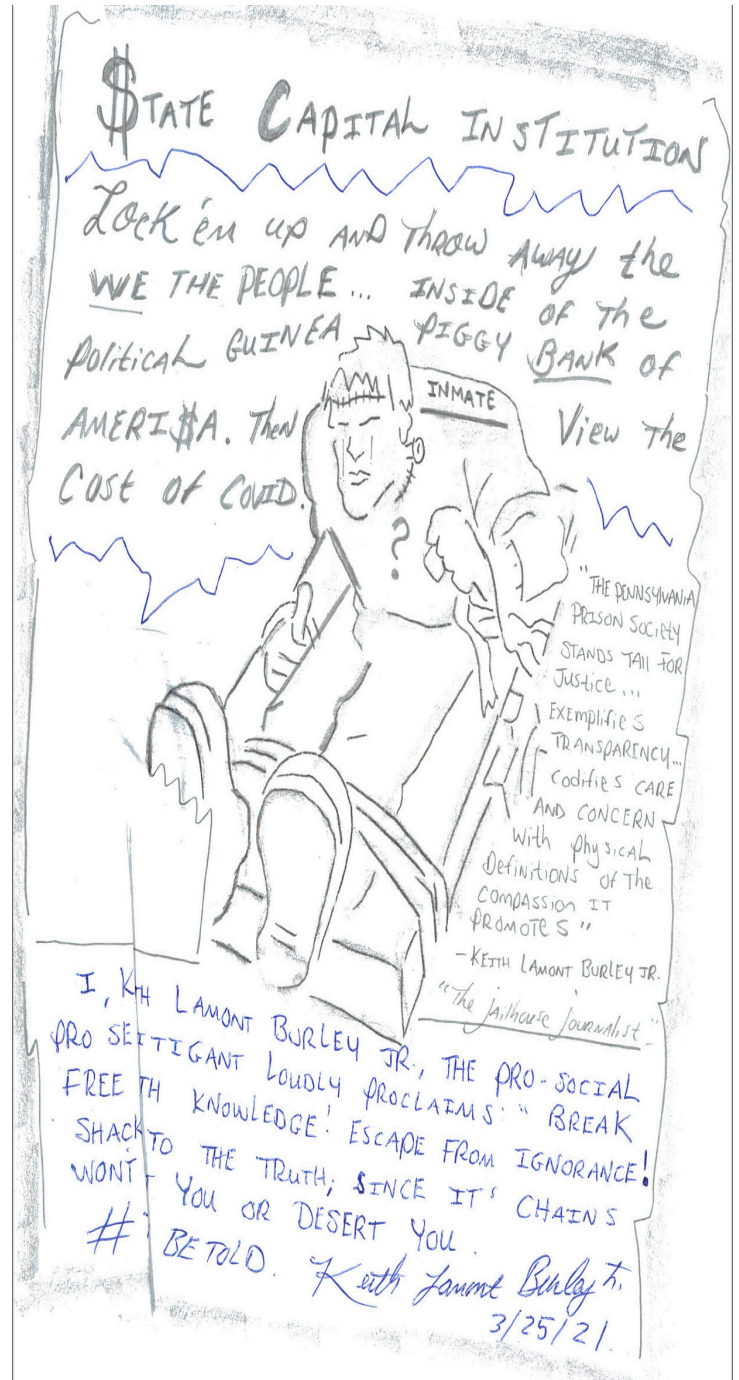 $TATE CAPITAL INSTITUTION
Lock 'em up AND THROW AWAY the
WE THE PEOPLE... INSIDE OF THE
Political GUINEA PIGGY BANK OF
AMERI$A. Then View The
Cost of COVID.
INMATE
?
"THE PENNSYlVANiA
PRISON SOCiEtY
STANDS TAll FOR
Justice...
EXEMPlifiES
TRANSPARENCY...
Codifies CARE
AND CONCERN
With physical
Definitions of The
COMPASSION IT
PROMOTES"
- KEITH LAMONT BURLEY JR.
"The jailhouse journalist"
I, K TH LAMONT BURLEY JR., THE PRO-SOCIAL
PRO SE TIGANT LOUDLY PROCLAIMS: "BREAK
FREE TH KNOWLEDGE! ESCAPE FROM IGNORANCE!
SHACK TO THE TRUTH; SINCE IT'S CHAINS
WONT YOU OR DESERT YOU.
# BE TOLD. Keith Lamont Burley Jr.
3/25/21.